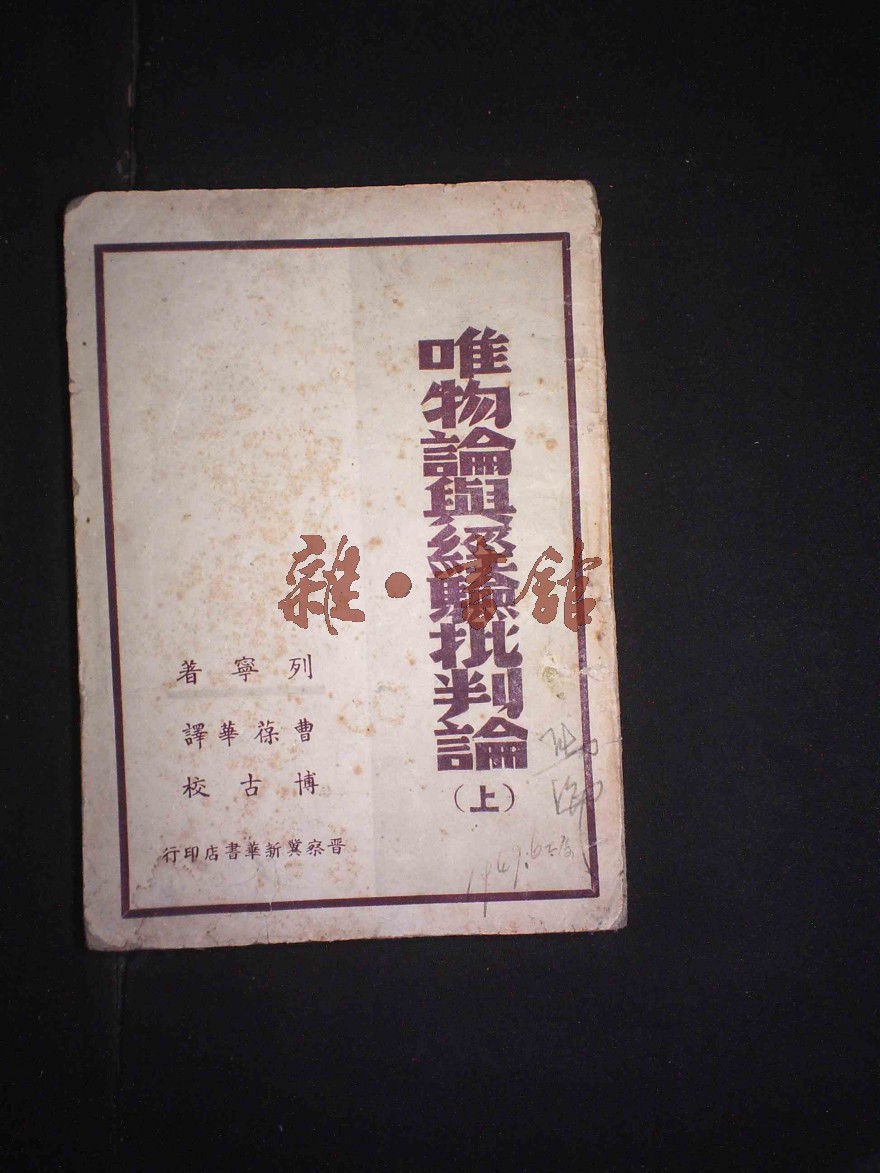 唯物論與經驗批判論
（上）
列寧著
曹葆華譯
博古校
晋察冀新華書店印行
雜·書館